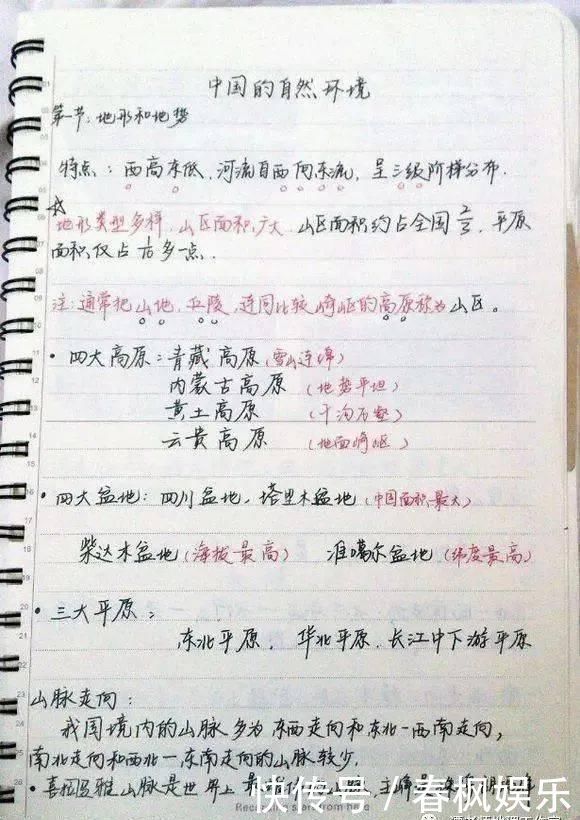 中国的自然环境
第一节:地形和地势
特点:西高东低,河流自西向东流,呈三级阶梯分布.
地形类型多样,山区面积广大.山区面积约占全国2/3,平原
面积仅占1/10多一点.
注:通常把山地,丘陵,连同比较崎岖的高原称为山区。
• 四大高原:青藏高原(雪山连绵)
内蒙古高原(地势平坦)
黄土高原(千沟万壑)
云贵高原(地面崎岖)
• 四大盆地:四川盆地,塔里木盆地(中国面积最大)
柴达木盆地(海拔最高) 准噶尔盆地(纬度最高)
• 三大平原:
东北平原,华北平原.长江中下游平原
山脉走向:
我国境内的山脉多为东西走向和东北—西南走向,
南北走向和西北—东南走向的山脉较少.
• 喜玛拉雅山脉是世界上最
快传号/春枫娱乐